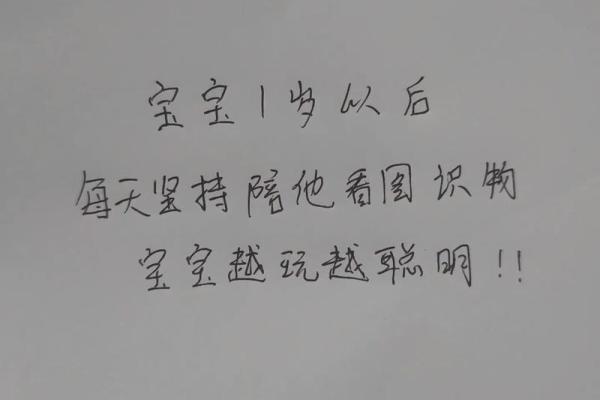 宝宝1岁以后
每天坚持陪他看图识物
宝宝越玩越聪明!!